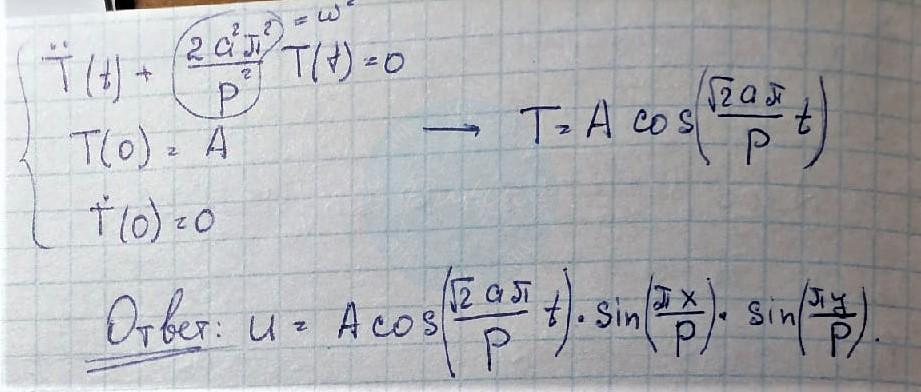 T̈(t) + 2a²π²/p² T(t) = 0
= ω²
T(0) = A
→ T = A cos(√2aπ/p t)
Ṫ(0) = 0
Ответ: u = A cos(√2aπ/p t) · sin(πx/p) · sin(πy/p).